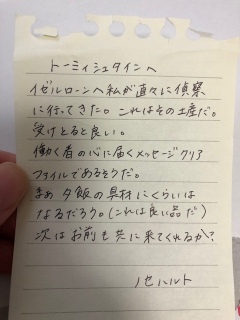 トーミィシュタインへ
イゼルローンへ私が直々に偵察
に行ってきた。これはその土産だ。
受けとると良い。
働く者の心に届くメッセージクリア
ファイルであるそうだ。
まぁ夕飯の具材にくらいは
なるだろう。(これは良い品だ)
次はお前も共に来てくれるか?
ノセハルト